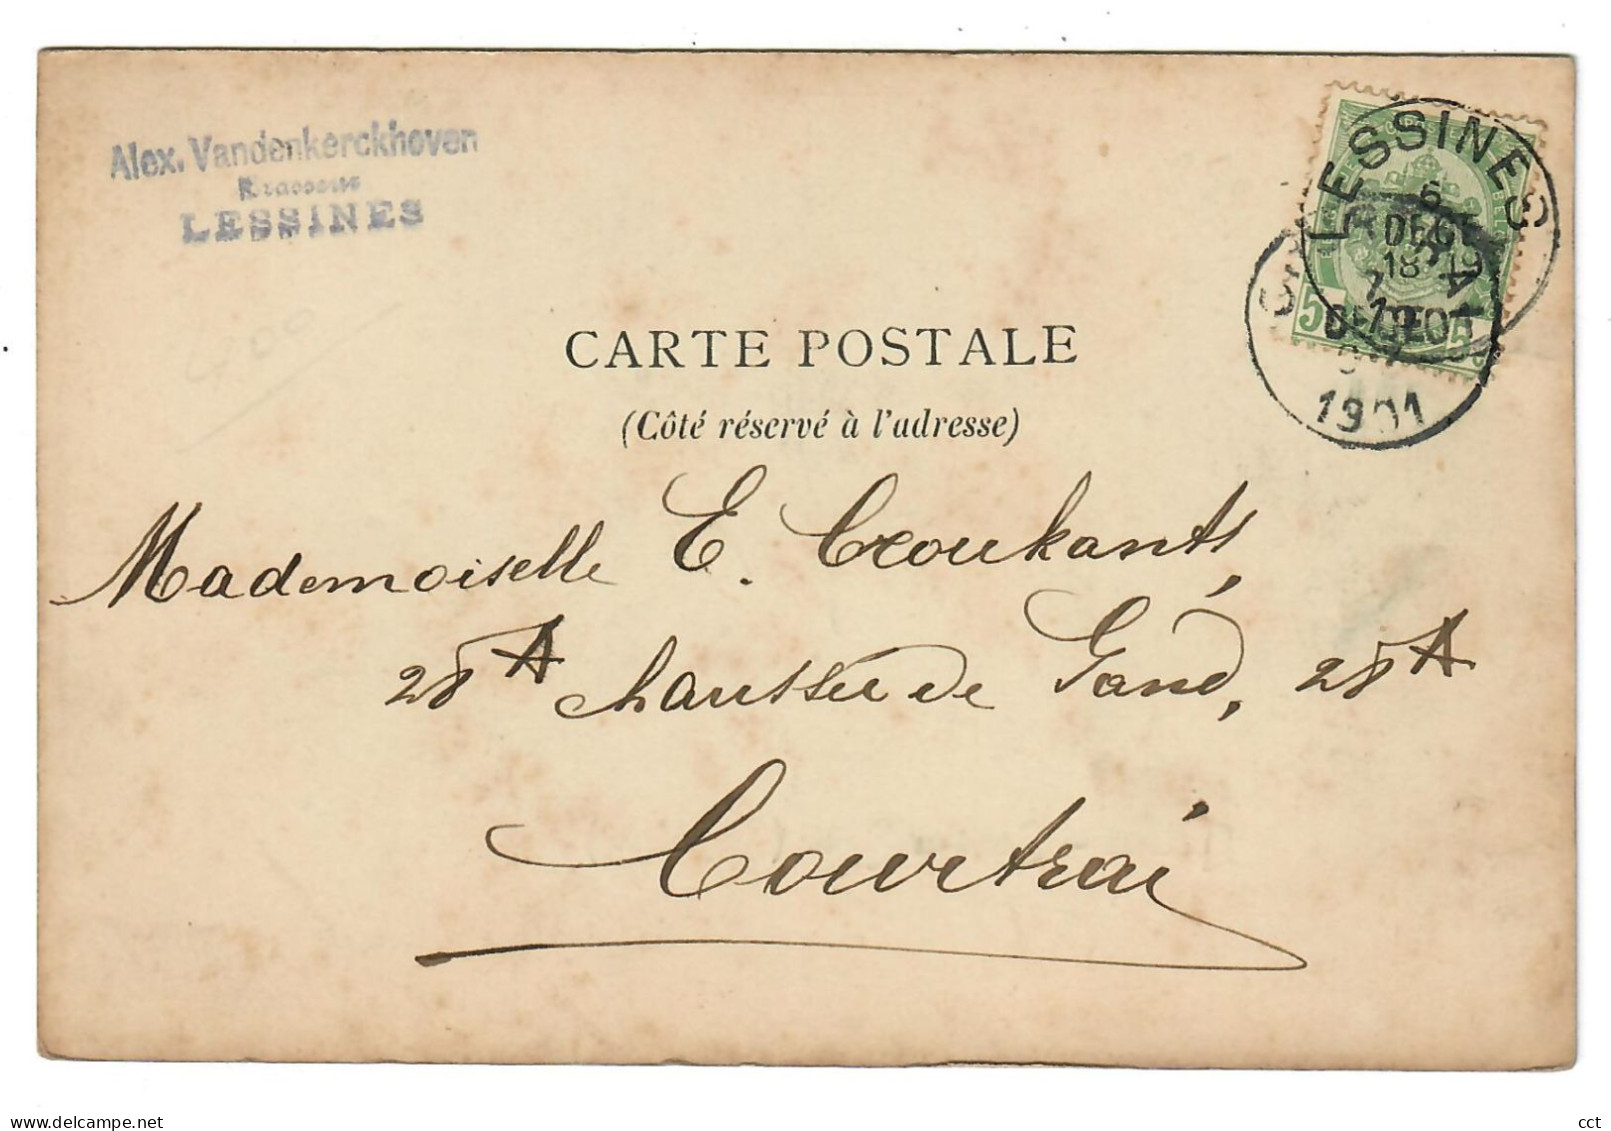 Alex. Vandenkerckhoven
Brasseur
LESSINES
CARTE POSTALE
(Côté réservé à l'adresse)
LESSINES
6
DEC
18
1901
5
Mademoiselle E.
28A chaussée de Gand, 28A
Courtrai
delcampe.net
cct